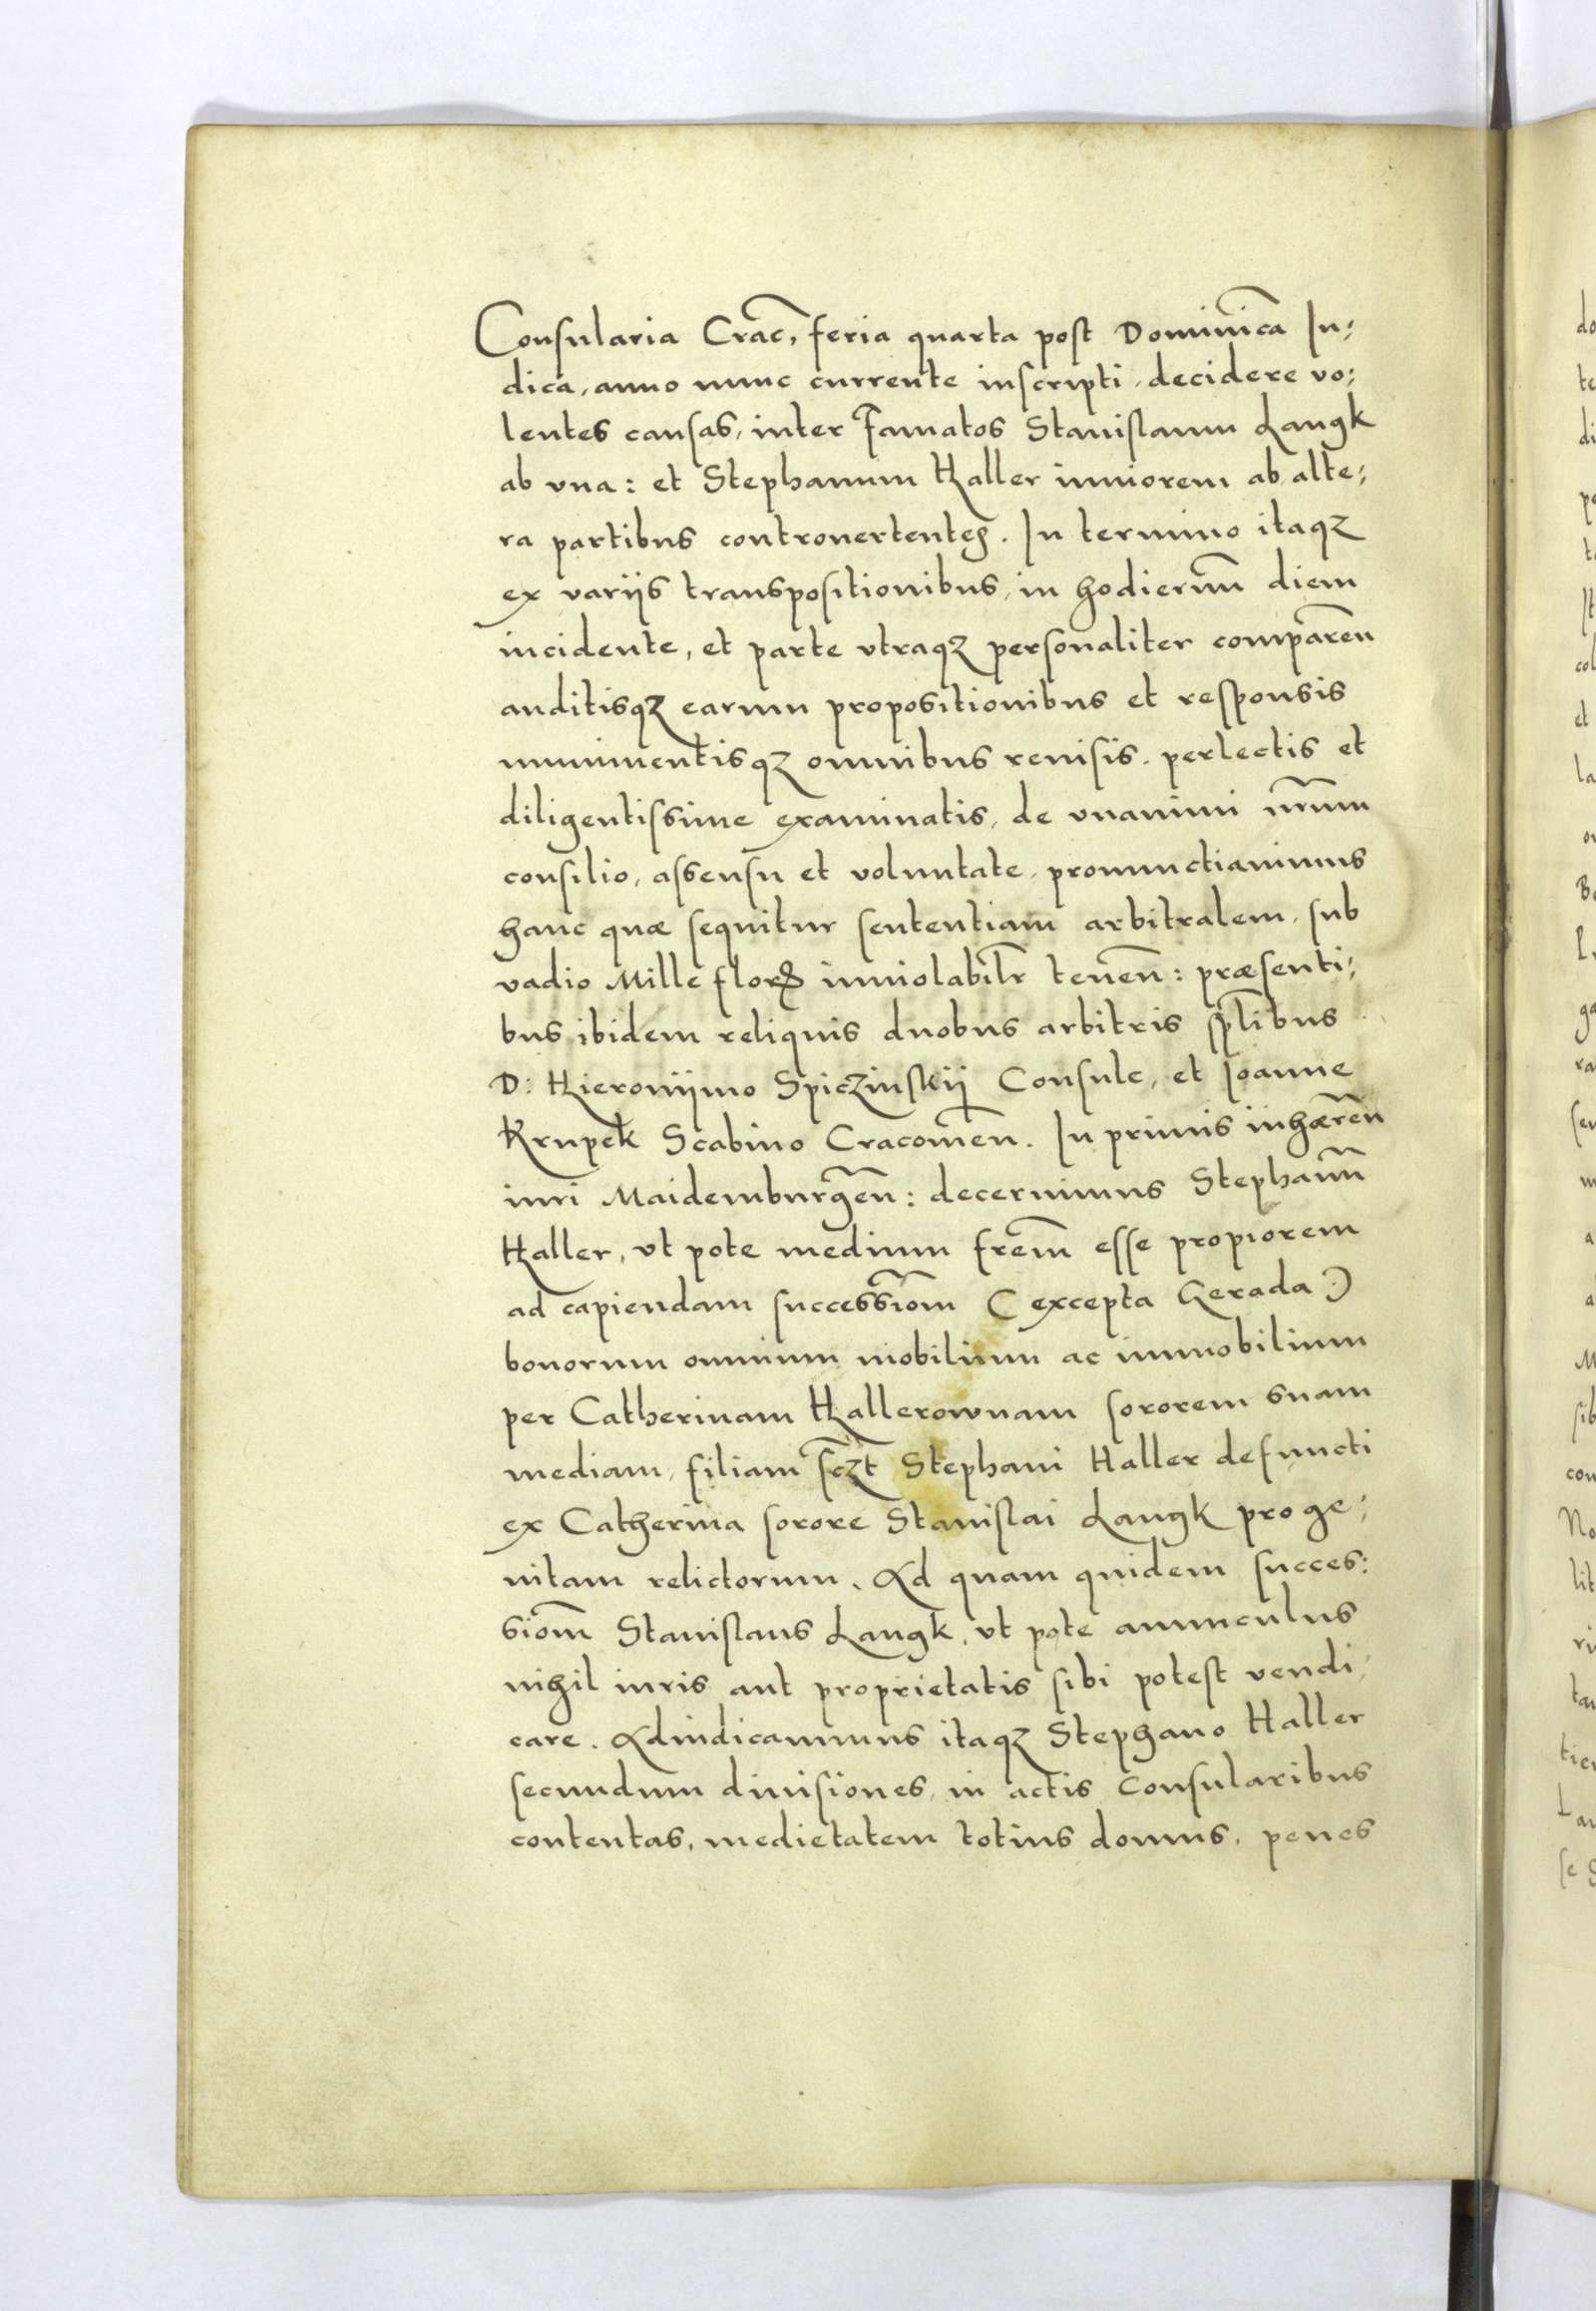 Consularia Crac̄, feria quarta post Dominic̄a Iu;
dica, anno nunc currente inscripti, decidere vo;
lentes causas, inter Famatos Stanislaum Langk
ab vna: et Stephanum Haller iuniorem ab alte;
ra partibus controuertentes. In termino itaqz
ex variis transpositionibus, in hodiernū diem
incidente, et parte vtraqz personaliter comparen̄
auditisqz earum propositionibus et responsis
munimentisqz omnibus reuisis, perlectis et
diligentissime examinatis, de vnanimi nr̄um
consilio, assensu et voluntate, pronunctiauimus
hanc quæ sequitur sententiam arbitralem, sub
vadio Mille florꝝ inuiolabilr̄ tenen̄: præsenti;
bus ibidem reliquis duobus arbitris sp̄libus
D: Hieronÿmo Spiczinskÿ Consule, et Joanne
Krupek Scabino Cracouien̄. In primis inhæren̄
iuri Maidemburgen̄: decernimus Stephanū
Haller, vt pote medium fr̄em esse propiorem
ad capiendam successiōm (excepta Gerada:)
bonorum omnium mobilium ac immobilium
per Catherinam Hallerownam sororem suam
mediam, filiam sc̄zt Stephani Haller defuncti
ex Catherina sorore Stanislai Langk proge;
nitam relictorum. Ad quam quidem succes:
siōm Stanislaus Langk, vt pote auunculus
nihil iuris aut proprietatis sibi potest vendi,
care. Adiudicauimus itaqz Stephano Haller
secundum diuisiones, in actis Consularibus
contentas, medietatem totius domus, penes